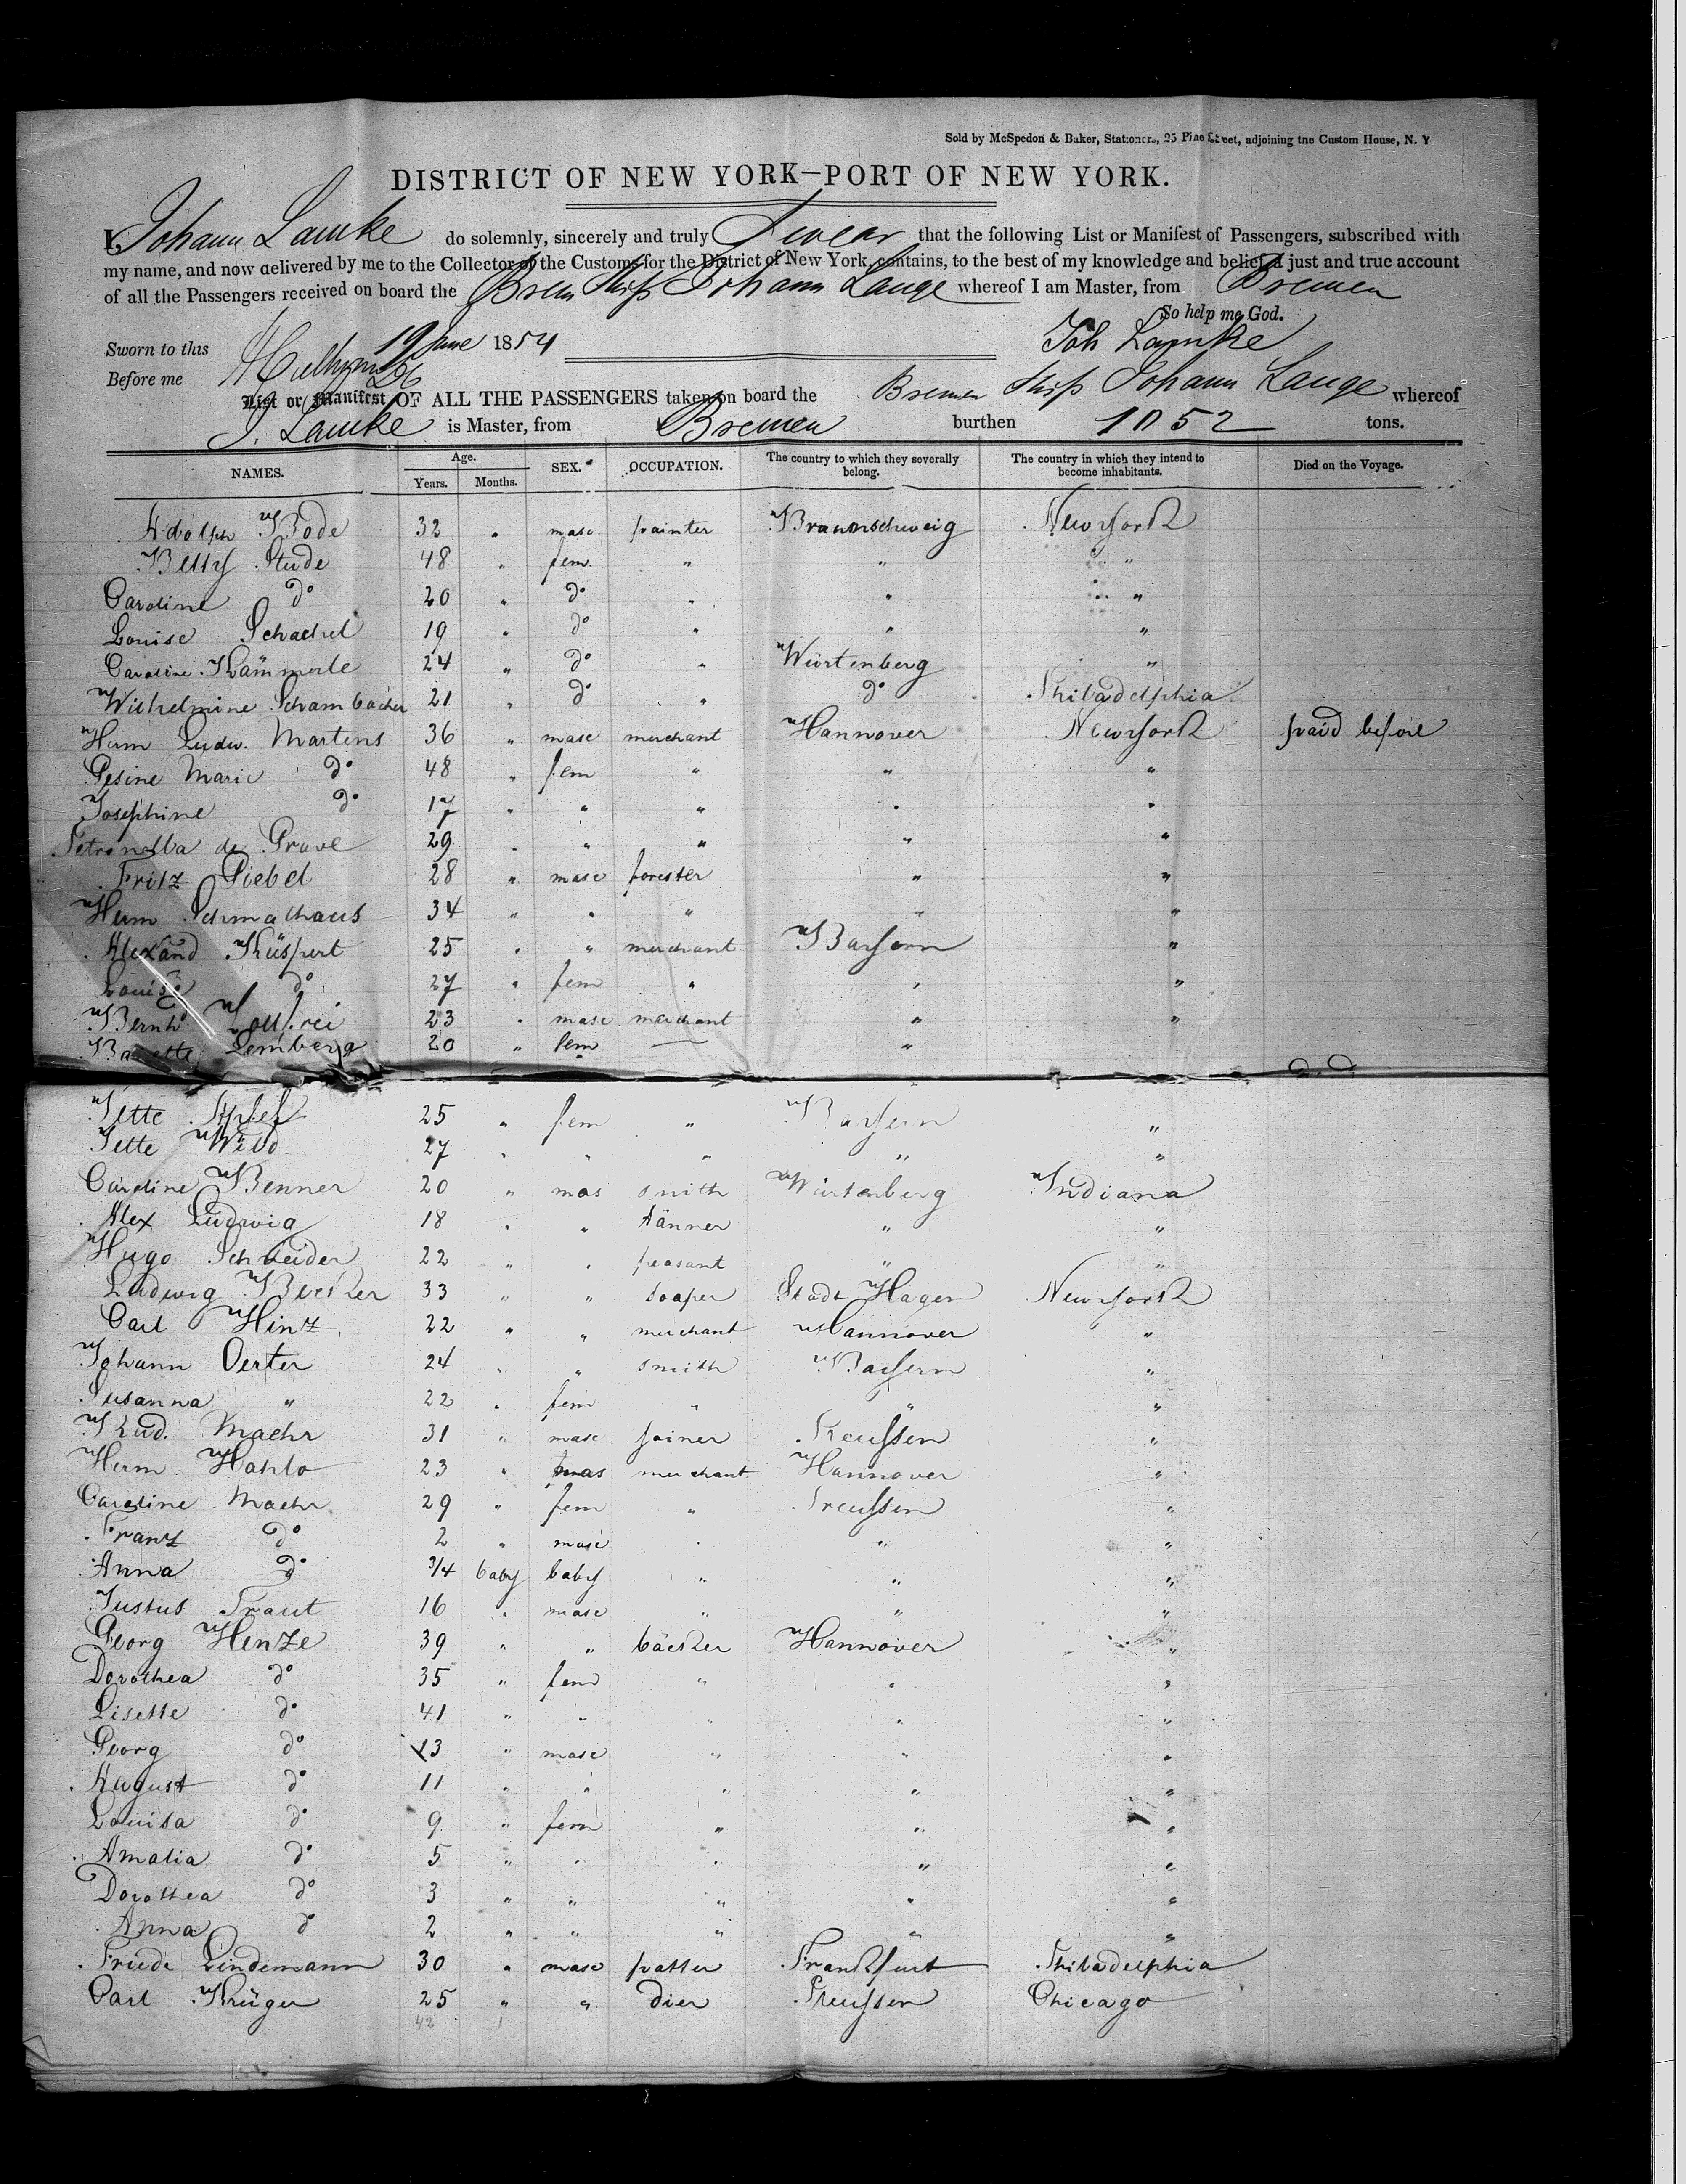 Sold by McSpedon & Baker, Stationers, 25 Pine Street, adjoining the Custom House, N. Y
DISTRICT OF NEW YORK—PORT OF NEW YORK.
I, Johann Lamke do solemnly, sincerely and truly Swear that the following List or Manifest of Passengers, subscribed with
my name, and now delivered by me to the Collector of the Customs for the District of New York, contains, to the best of my knowledge and belief, a just and true account
of all the Passengers received on board the Brem Ship Johann Lange whereof I am Master, from Bremen
So help me God.
Sworn to this 19 June 1854 Joh Lamke
Before me
List or Manifest OF ALL THE PASSENGERS taken on board the Bremen Ship Johann Lange whereof
J. Lamke is Master, from Bremen burthen 1052 tons.
NAMES. Age. Years. Months. SEX. OCCUPATION. The country to which they severally belong. The country in which they intend to become inhabitants. Died on the Voyage.
Adolph Bode 32 " masc painter Braunschweig Newyork
Betty Stude 48 " fem " " "
Caroline do 20 " do " " "
Louise Schachel 19 " do " " "
Caroline Kämmerle 24 " do " Würtenberg "
Wilhelmine Schambacher 21 " do " do Philadelphia
Herm Ludw. Martens 36 " masc merchant Hannover Newyork paid before
Gesine Marie do 48 " fem " " "
Josephine do 17 " " " " "
Petronella de Grave 29 " " " " "
Fritz Giebel 28 " masc forester " "
Herm Schmalhaus 34 " " " " "
Alexand Küspert 25 " " merchant Bayern "
Louise do 27 " fem " " "
Bernh 23 " masc merchant " "
Babette Lemberg 20 " fem — "
Jette 25 " fem " Bayern "
Jette Wild 27 " " " " "
Caroline Benner 20 " mas smith Würtenberg Indiana
Alex Ludwig 18 " " tänner " "
Hugo Schneider 22 " " peasant " "
Ludwig Becker 33 " " soaper Stadt Hagen Newyork
Carl Hinz 22 " " merchant Hannover "
Johann Oerter 24 " " smith Bayern "
Susanna " 22 " fem " " "
Rud. Maehr 31 " masc joiner Preussen "
Herm Hahlo 23 " mas merchant Hannover "
Caroline Maehr 29 " fem " Preussen "
Franz do 2 " masc " " "
Anna do 3/4 baby baby " " "
Justus Traut 16 " masc " " "
Georg Henze 39 " " bäcker Hannover "
Dorothea do 35 " fem " " "
Lisette do 41 " " " " "
Georg do 13 " masc " " "
August do 11 " " " " "
Louisa do 9 " fem " " "
Amalia do 5 " " " " "
Dorothea do 3 " " " " "
Anna do 2 " " " " "
Friedr Lindemann 30 " masc Frankfurt Philadelphia
Carl Krüger 25 " " dier Preussen Chicago
42